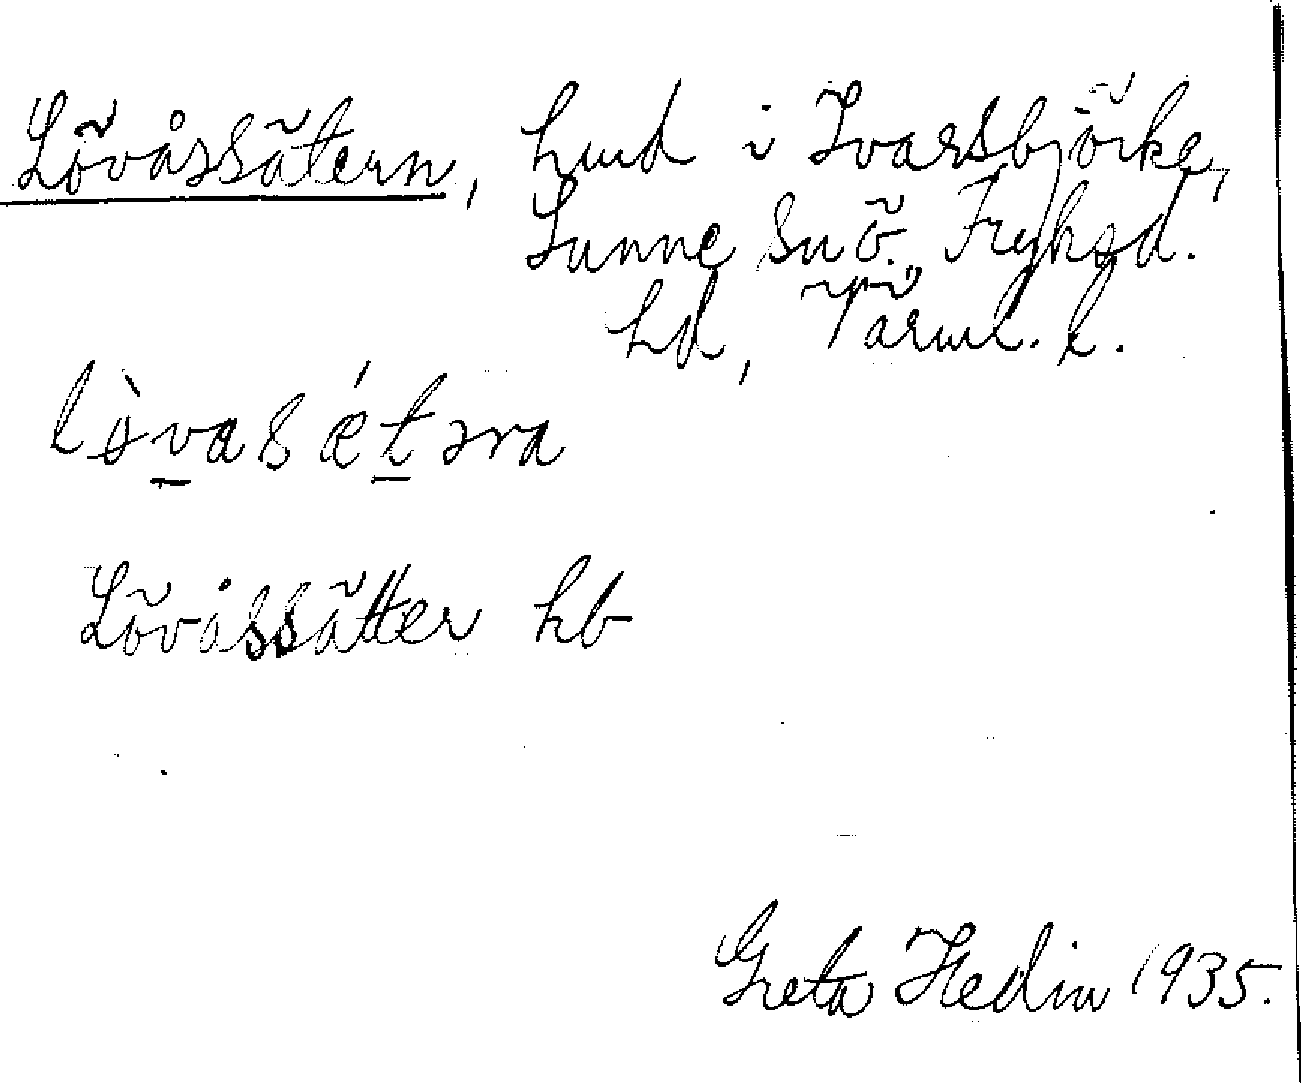 Lövåssätern, hmd i Ivarsbjörke,
Sunne sn ö. Fryksd.
hd, Värml. l.
lòvasǽtəra
Lövåssätter hb
Greta Hedin 1935.